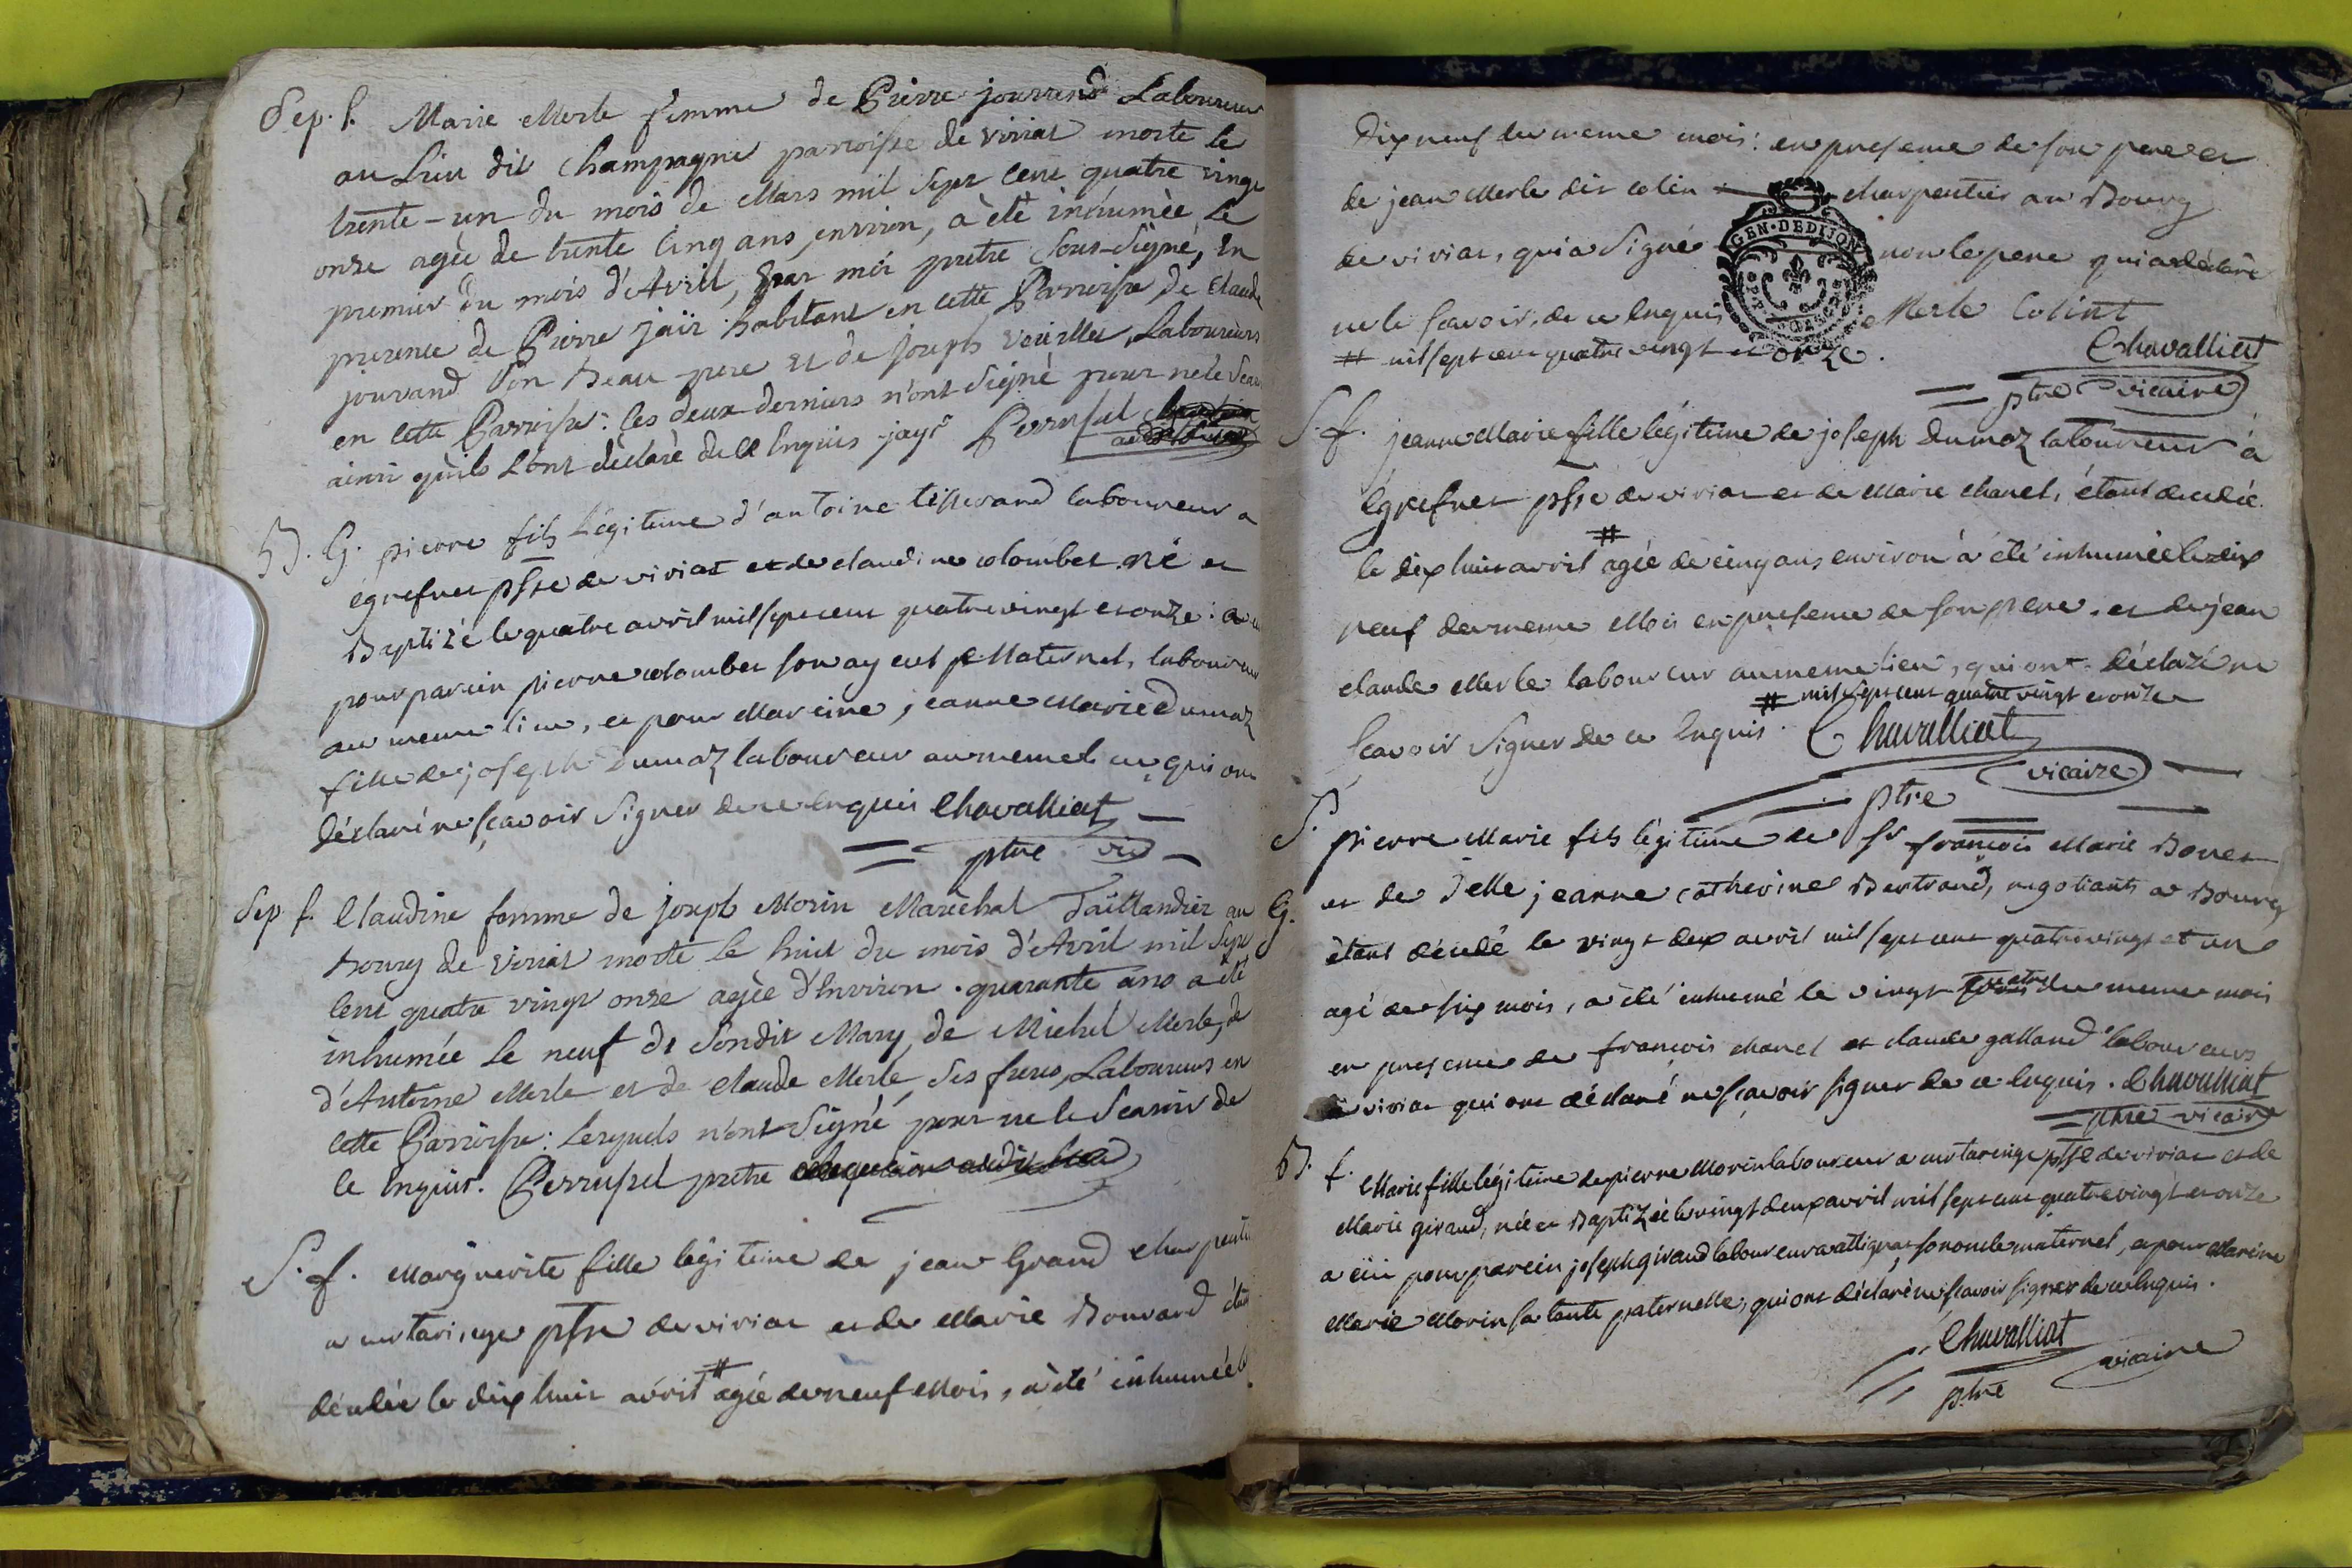 Sep. f. Marie Merle femme de Pierre jouvrand Laboureur
au Lieu dit Champagne parroisse de viriat morte le
trente-un du mois de Mars mil sept cent quatre vingt
onze agée de trente cinq ans environ, a été inhumée le
premier du mois d'Avril, par moi pretre sous-signé, en
presence de Pierre jaïr habitant en cette Parroisse, de Claude
jouvand son Beau-pere et de joseph Laboureurs
en cette Parroisse: les deux derniers n'ont signé pour ne le Scav
ainsi qu'ils l'ont déclaré de ce Enquis jayr Perrusel
B. G. pierre fils Légitime d'antoine tisserand laboureur a
égrefuet psse de viriat et de claudine colombet né et
Baptizé le quatre avril mil sept cent quatre vingt et onze: a eu
pour parein pierre colomber son ayeul Maternel, laboureur
au meme lieu, et pour Mareine jeanne Marie Dumaz
fille de joseph Dumaz laboureur au meme lieu qui ont
déclaré ne sçavoir signer de ce enquis Chavalliat
ptre vic
Sep. f. Claudine femme de joseph Morin Maréchal Taillandier au
Bourg de viriat morte le huit du mois d'Avril mil Sept
Cent quatre vingt onze agée d'Environ quarante ans a été
inhumée Le neuf de Sondit Mary, de Michel Merle, de
d'Antoine Merle et de Claude Merle ses freres, Laboureurs en
cette Parroisse: Lesquels n'ont Signé pour ne le Scavoir de
ce Enquis. Perrusel pretre
S. f. Marguerite fille légitime de jean Grand charpentie
a curtaringe psse de viriat et de Marie Bouvard étan
décedée le dix huit avril # agée de neuf Mois, a été inhumée le
dix neuf du meme mois: en presence de son pere et
de jean Merle dit colin charpentier au Bourg
de viriat, qui a Signé non le pere qui a déclaré
ne le scavoir, de ce Enquis Merle Colint
# mil sept cent quatre vingt et onze. Chavalliat
ptre vicaire
GEN. DE DIJON
S. f. jeanne Marie fille légitime de joseph Dumaz laboureur à
égrefuet psse de viriat et de Marie Chanel, étant decedée
le dix huit avril # agée de cinq ans environ a été inhumée le dix
neuf du meme Mois en presence de son pere, et de jean
claude Merle laboureur au meme lieu, qui ont déclaré ne
# mil sept cent quatre vingt et onze
scavoir Signer de ce Enquis. Chavalliat
ptre vicaire
S. pierre Marie fils légitime de Sr françois Marie Boner
G. et de Delle jeanne catherine Bertrand, negotiants a Bourg
étant décedé le vingt deux avril mil sept cent quatre vingt et un
agé de six mois, a été inhumé le vingt quatre du meme mois
en presence de françois chanel et claude galland laboureurs
a viriat qui ont déclaré ne scavoir signer de ce Enquis. Chavalliat
ptre vicaire
B. f. Marie fille légitime de pierre Morin laboureur a curtaringe psse de viriat et de
Marie giraud, née et Baptizée le vingt deux avril mil sept cent quatre vingt et onze
a eü pour parein joseph giraud laboureur a attignat son oncle maternel, et pour Mareine
Marie Morin sa tante paternelle, qui ont déclaré ne scavoir signer de ce Enquis.
Chavalliat
ptre vicaire